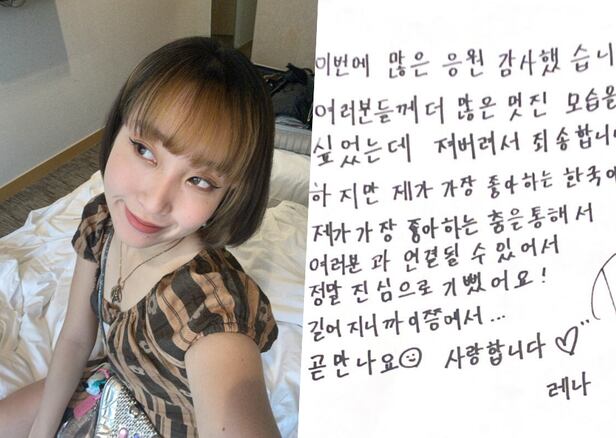 이번에 많은 응원 감사했습니
여러분들께 더 많은 멋진 모습을
싶었는데 져버려서 죄송합니
하지만 제가 가장 좋아하는 한국에
제가 가장 좋아하는 춤을 통해서
여러분과 연결될 수 있어서
정말 진심으로 기뻤어요!
길어지니까 이쯤에서...
곧 만나요☺ 사랑합니다♡
레나